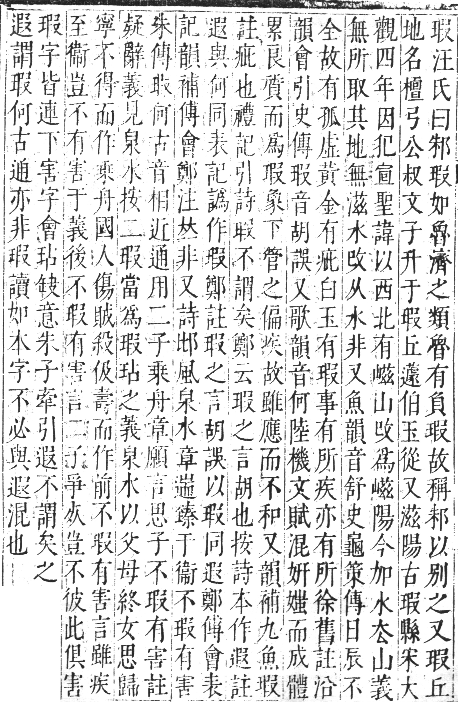 瑕汪氏曰邾瑕如魯濟之類魯有負瑕故稱邾以別之又瑕丘
地名檀弓公叔文子升于瑕丘蘧伯玉從又滋陽古瑕縣宋大
觀四年因犯宣聖諱以西北有嵫山改為嵫陽今加水厺山義
無所取其地無滋水改从水非又魚韻音舒史龜策傳日辰不
全故有孤虛黃金有疵白玉有瑕事有所疾亦有所徐舊註沿
韻會引史傳瑕音胡誤又歌韻音何陸機文賦混妍媸而成體
累良質而為瑕象下管之偏疾故雖應而不和又韻補九魚瑕
註疵也禮記引詩瑕不謂矣鄭云瑕之言胡也按詩本作遐註
遐與何同表記譌作瑕鄭註瑕之言胡誤以瑕同遐鄭傅會表
記韻補傅會鄭注𠀤非又詩邶風泉水章遄臻于衞不瑕有害
朱傳瑕何古音相近通用二子乗舟章願言思子不瑕有害註
疑辭義見泉水按二瑕當為瑕玷之義泉水以父母終女思歸
寧不得而作乗舟國人傷賊殺伋壽而作前不瑕有害言雖疾
至衞豈不有害于義後不瑕有害言二子爭死豈不彼此俱害
瑕字皆連下害字會玷缺意朱子牽引遐不謂矣之
遐謂瑕何古通亦非瑕讀如本字不必與遐混也